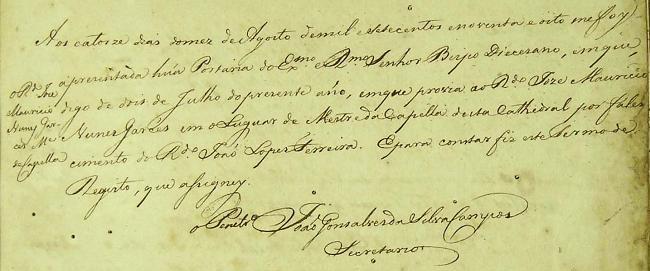 Aos catorze dias do mez de Agosto de mil e setecentos enoventa e oito me foy
apresentada huã Portaria do Ex.mo e R.mo Senhor Bispo Diecezano, em que
digo de dois de Julho do prezente año, em que provia ao R.do Joze Mauricio
Nunes Garces em o Luguar de Mestre da Capella desta Cathedral por fales
cimento do R.do Joaõ Lopes Ferreira. E para constar fiz este Termo de
Registo, que asigney.
o P.e Joze
Mauricio
Nunes Gar
ces Me
da Capella
João Gonsalves da Silva Campos
Secretario